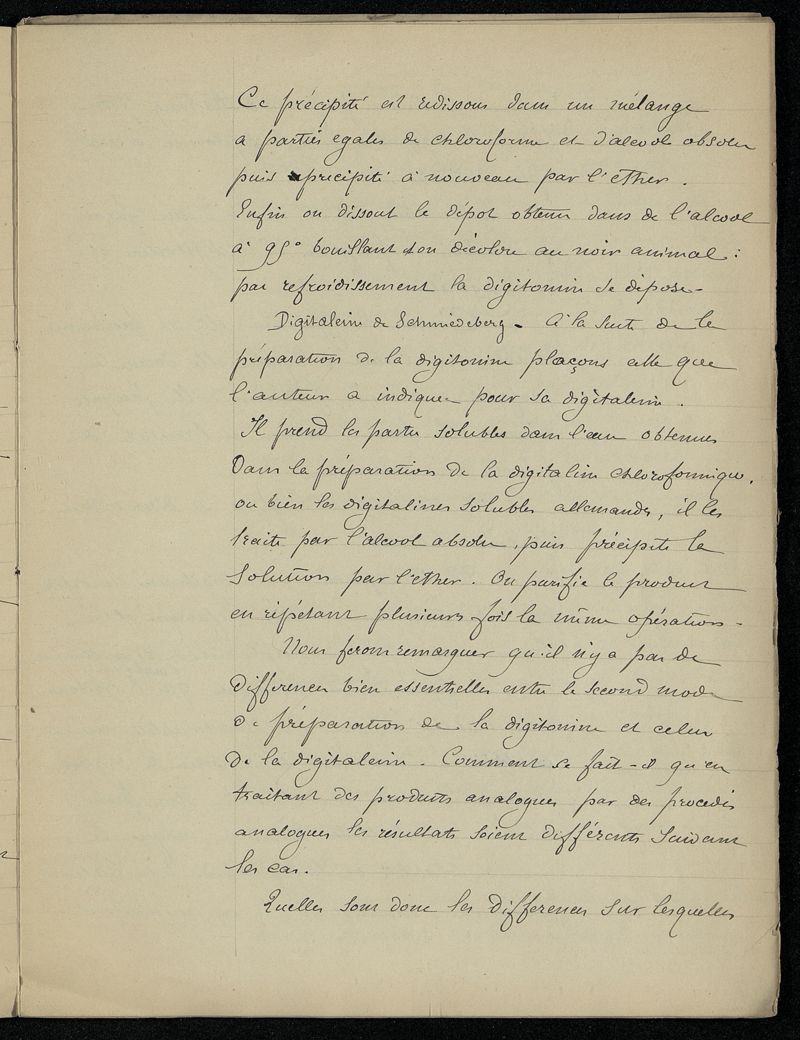 Ce précipité est redissous dans un mélange
a parties egales de chloroforme et d'alcool absolu
puis precipité à nouveau par l'éther.
Enfin on dissout le dépot obtenu dans de l'alcool
à 95° bouillant & on décolore au noir animal :
par refroidissement la digitonine se dépose -
Digitaleine de Schmiedeberg - A la suite de la
préparation de la digitonine plaçons celle que
l'auteur a indiquée pour sa digitaleine.
Il prend les parties solubles dans l'eau obtenues
Dans la préparation de la digitaline chloroformique,
ou bien les digitalines solubles allemandes, il les
traite par l'alcool absolu, puis précipite la
Solution par l'ether. On purifie le produit
en répétant plusieurs fois la même opération -
Nous ferons remarquer qu'il n'y a pas de
différences bien essentielles entre le second mode
de préparation de la digitonine et celui
de la digitaleine. Comment se fait-il qu'en
traitant des produits analogues par des procédés
analogues les résultats soient différents suivant
les cas.
Quelles sont donc les differences sur lesquelles